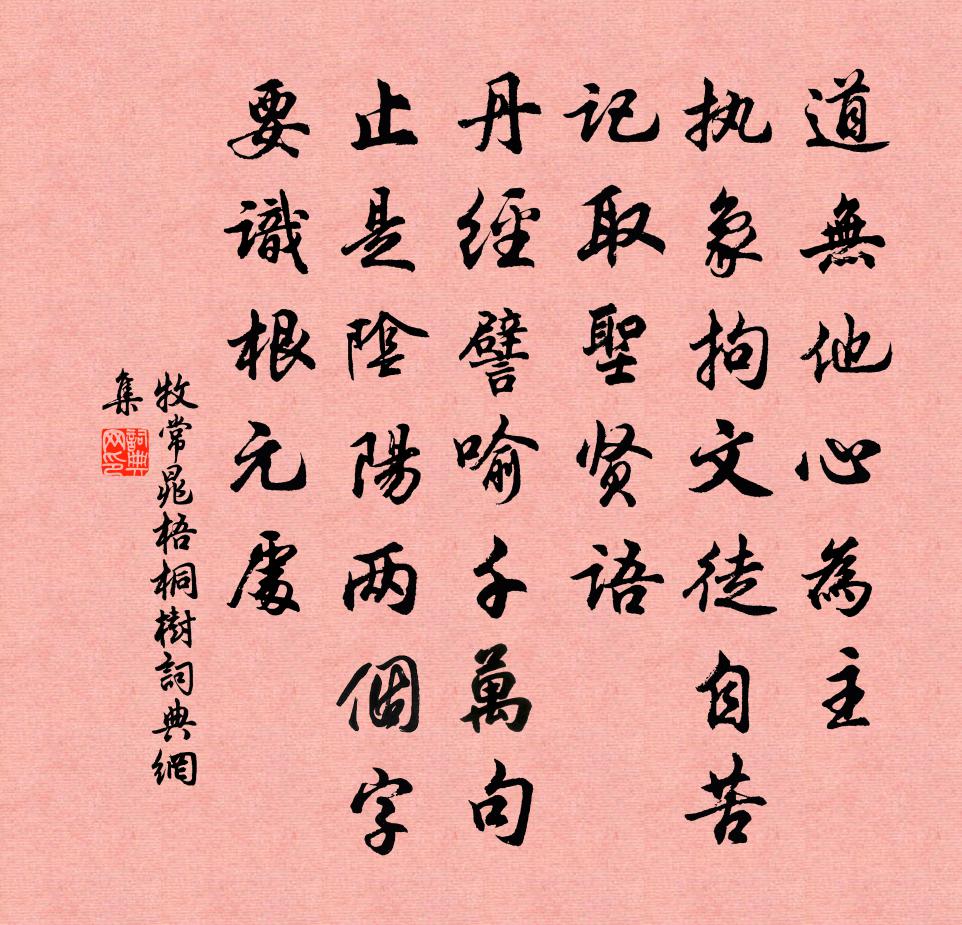 道無他心為主
执象拘文徒自苦
记取聖贤语
丹經譬喻千萬句
止是陰陽两個字
要識根元處
牧常晁梧桐樹詞典網
集
詞典网印